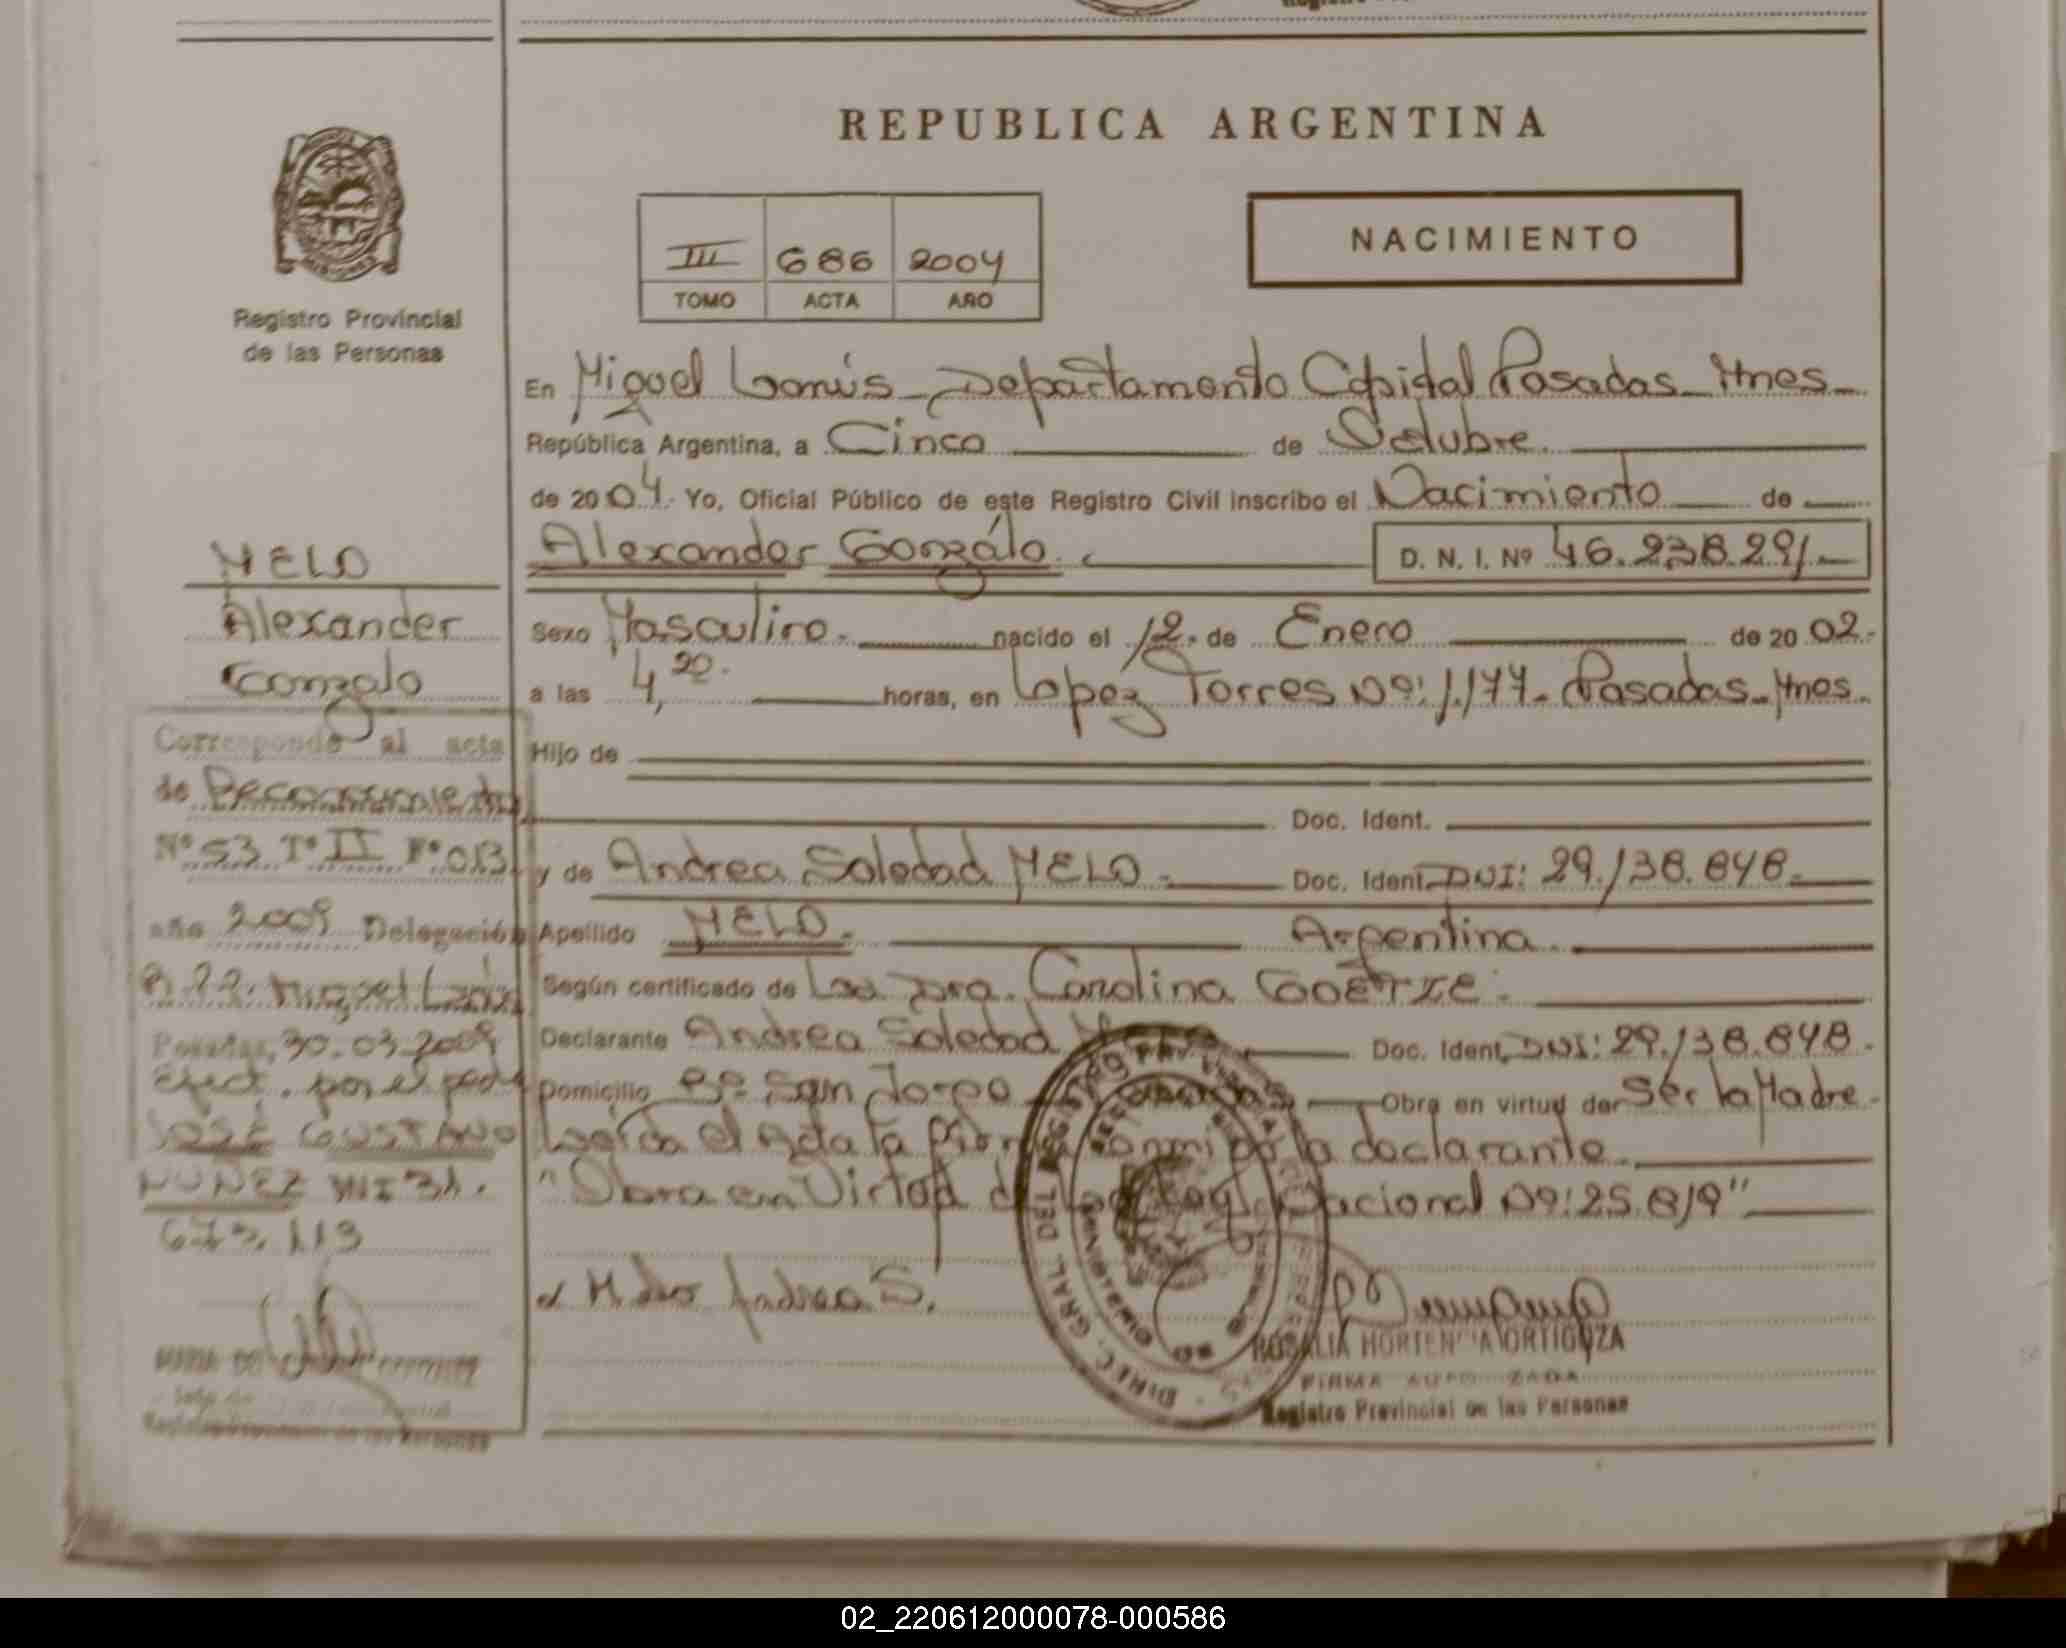 REPUBLICA ARGENTINA
NACIMIENTO
III 686 2004
TOMO ACTA AÑO
Registro Provincial
de las Personas
En Miguel Lanús - Departamento Capital Posadas - Mnes -
República Argentina, a Cinco de Octubre.
de 2004. Yo, Oficial Público de este Registro Civil inscribo el Nacimiento de
Alexander Gonzálo. D. N. I. Nº 46.238.291.-
Sexo Masculino. nacido el 12. de Enero de 2002.-
a las 4,20. horas, en Lopez Torres Nº: 1.177- Posadas - Mnes.
Hijo de
Doc. Ident.
y de Andrea Soledad MELO. Doc. Ident. DNI: 29.138.848.-
Apellido MELO. Argentina.
Según certificado de La Dra. Carolina GOETZE.
Declarante Andrea Soledad Doc. Ident. DNI: 29.138.848.
Domicilio Bº San Jorge Posadas Obra en virtud de Ser la Madre.
Leída el Acta la la declarante.
"Obra en Virtud de Nacional Nº: 25.819"
Melo Andrea S.
ROSALIA HORTENCIA ORTIGOZA
FIRMA AUTORIZADA
Registro Provincial de las Personas
MELO
Alexander
Gonzalo
Corresponde al acta
de Reconocimiento
Nº 53 Tº II Fº 013
año 2009 Delegación
Miguel Lanús
Posadas, 30.03.2009
Efect. por el padre
JOSÉ GUSTAVO
NUÑEZ MI 31.
673.113
Registro Provincial de las Personas
02_220612000078-000586